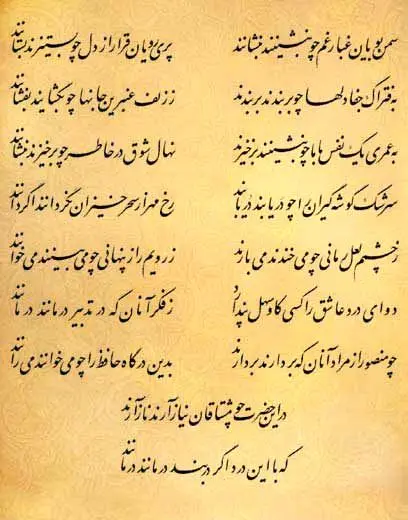 سمن بویان غبار غم چو بنشینند بنشانند پری رویان قرار از دل چو بستیزند بستانند
به فتراک جفا دلها چو بربندند بربندند ز زلف عنبرین جانها چو بگشایند بفشانند
به عمری یک نفس با ما چو بنشینند برخیزند نهال شوق در خاطر چو برخیزند بنشانند
سرشک گوشه گیران را چو دریابند در یابند رخ مهر از سحر خیزان نگردانند اگر دانند
ز چشمم لعل رمانی چو می خندند می بارند ز رویم راز پنهانی چو می بینند می خوانند
دوای درد عاشق را کسی کاو سهل پندارد ز فکر آنان که در تدبیر درمانند در مانند
چو منصور از مراد آنان که بردارند بردارند بدین درگاه حافظ را چو می خوانند می رانند
در این حضرت چو مشتاقان نیاز آرند ناز آرند
که با این درد اگر دربند درمانند درمانند